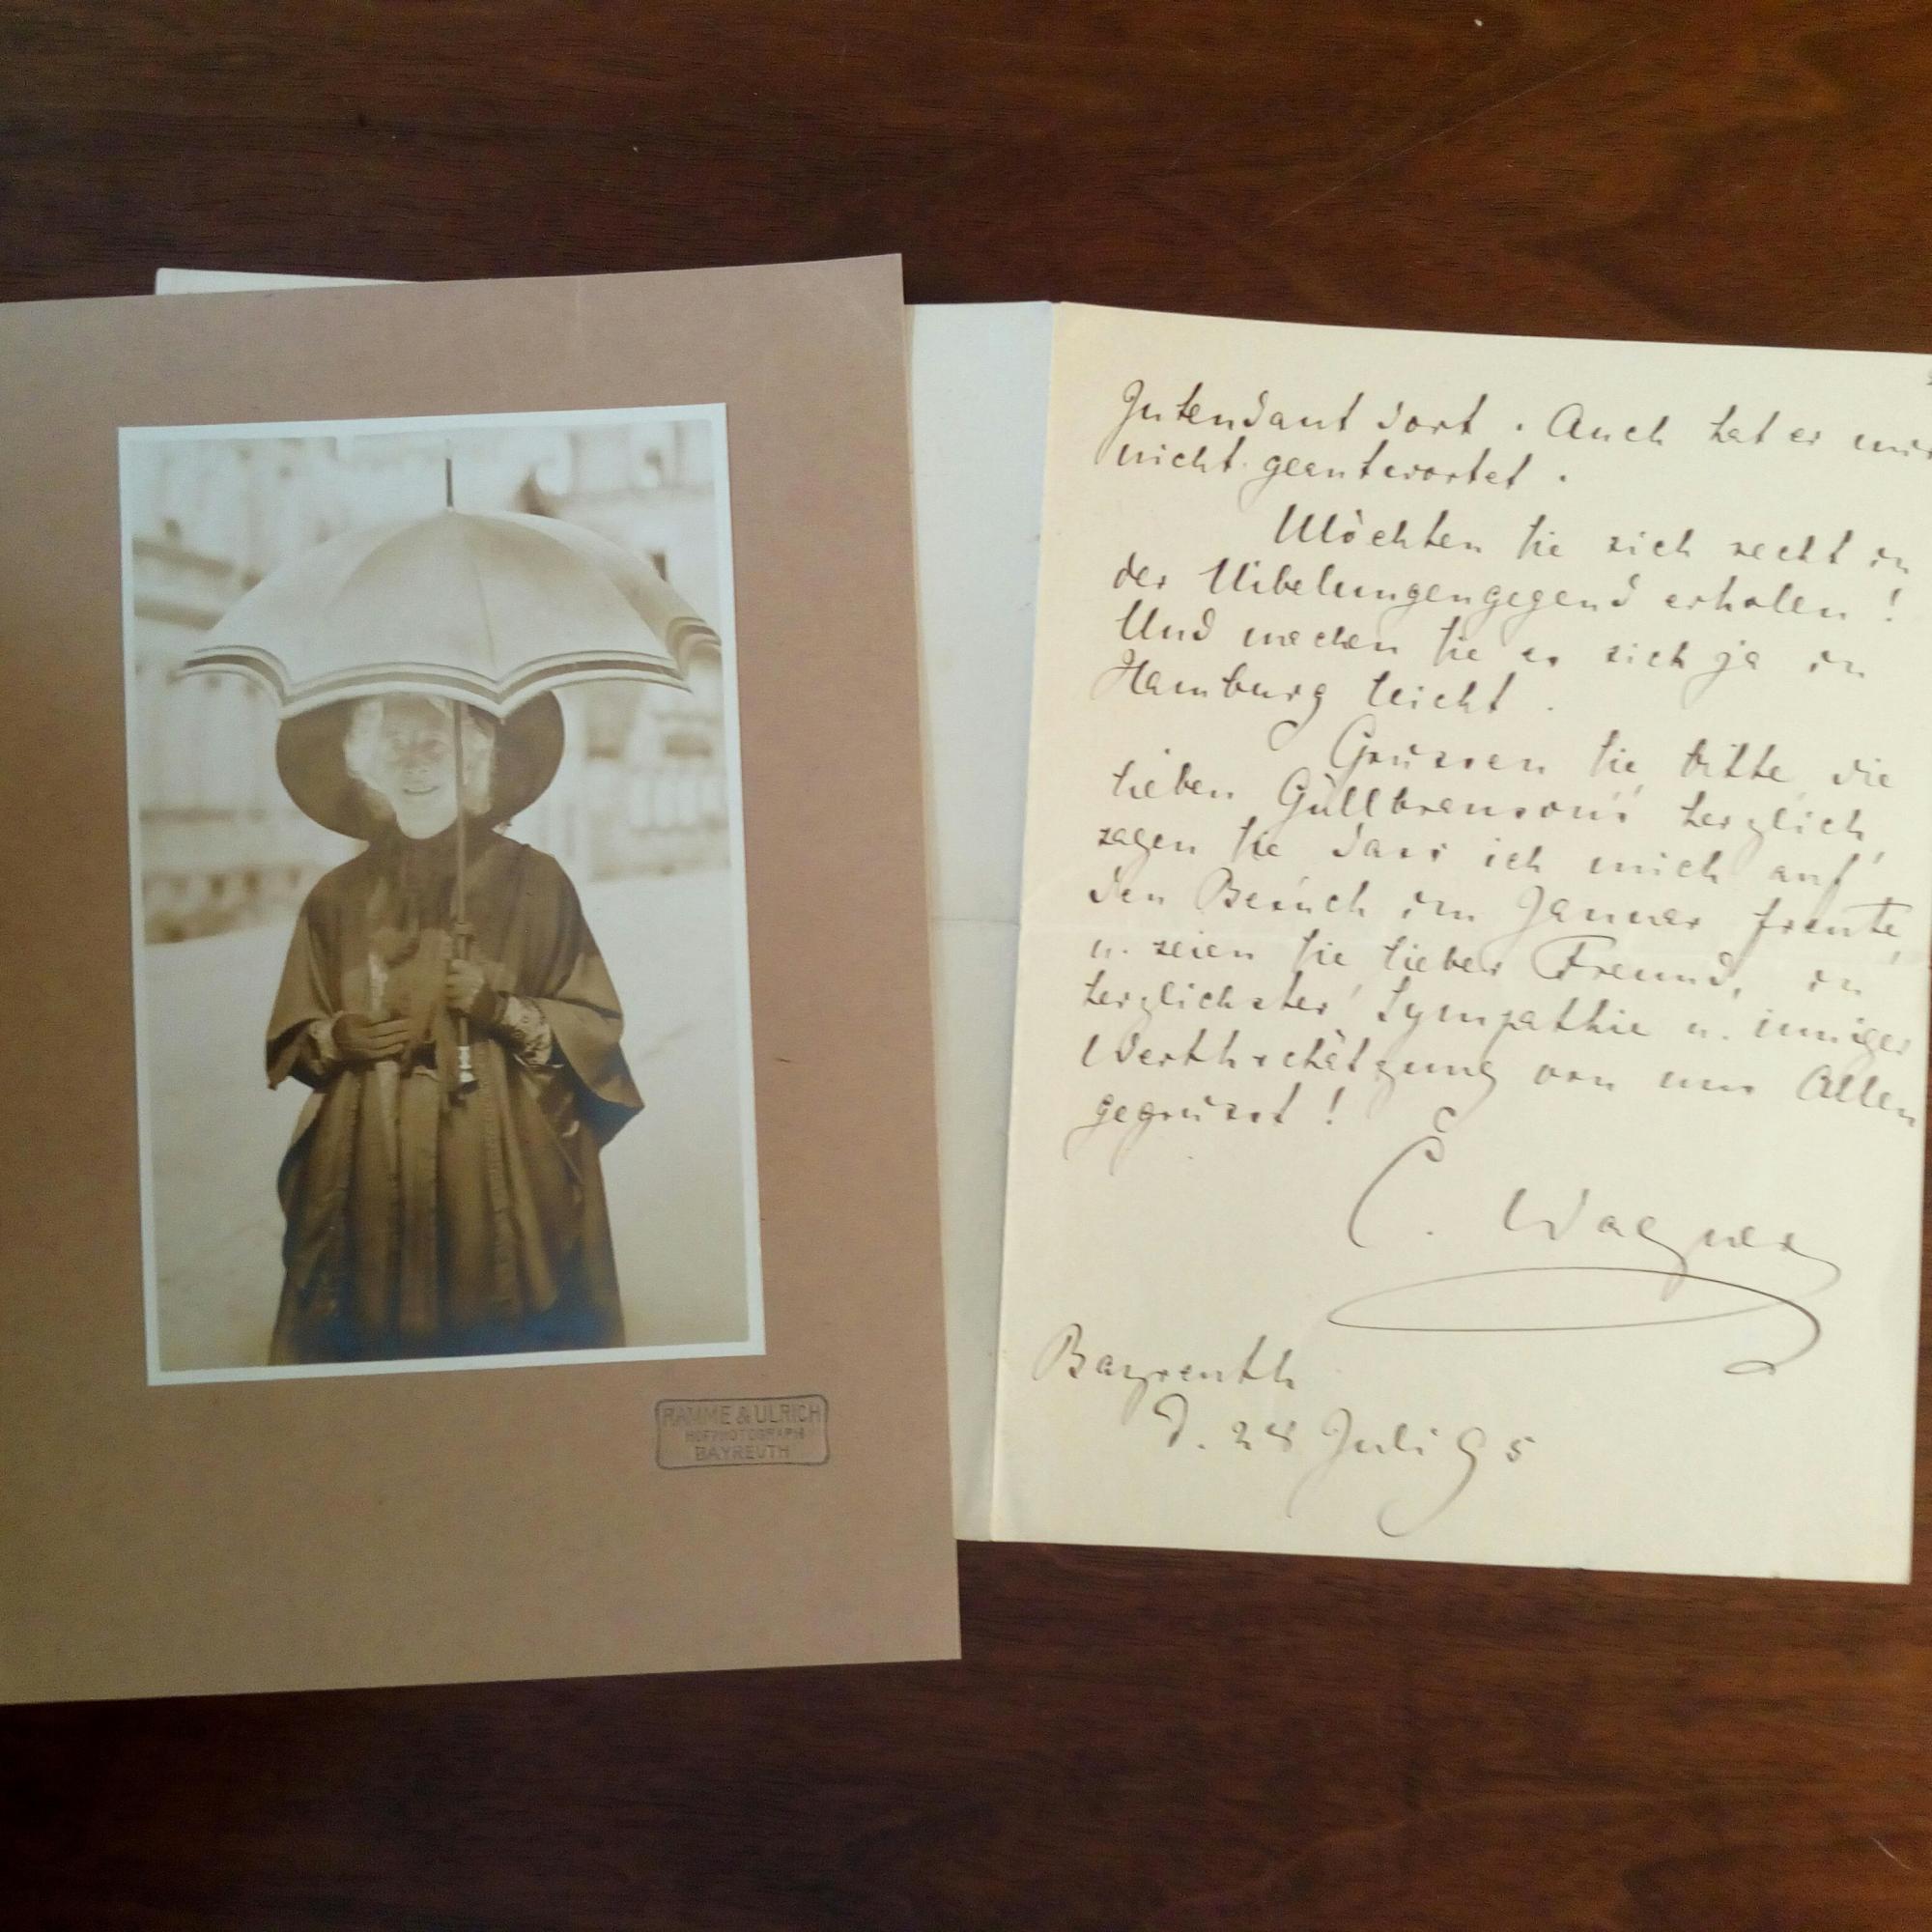 RAMME & ULRICH
HOFPHOTOGRAPH
BAYREUTH
Intendant dort. Auch hat er mir
nicht geantwortet.
Möchten Sie sich recht in
der Nibelungengegend erholen!
Und machen Sie es sich ja in
Hamburg leicht.
Grüssen Sie, bitte, die
lieben Gúllbranson's herzlich,
sagen Sie dass ich mich auf
den Besúch im Januar freute,
u. seien Sie lieber Freund, in
herzlichster Sympathie u. inniger
Werthschätzung von uns Allen
gegrüsst!
C. Wagner
Bayreuth
d. 28 Juli 95